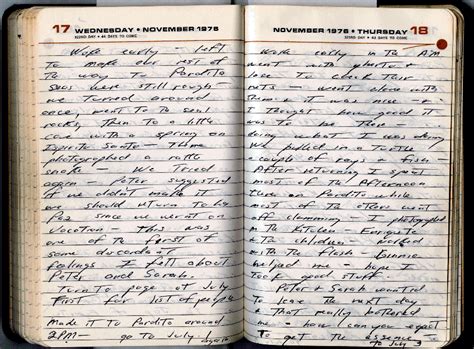 17 WEDNESDAY • NOVEMBER 1976
322ND DAY • 44 DAYS TO COME
Woke early - left
to make our rest of
the way to Pardito
Seas were still rough -
we turned around
once, went to the seal
rocks, then to a little
cove with a spring on
Espirito Santo -
photographed a rattle
snake - We tried
again - Peter suggested
if we didn't make it
we should return to La
Paz since we weren't on
vacation - This was
one of the first of
some discordant
feelings I will about
Peter and Sarah.
Turn to page of July
First for list of people
Made it to Pardito around
2PM - go to July 1
NOVEMBER 1976 • THURSDAY 18
323RD DAY • 43 DAYS TO COME
Woke early in the A.M
went with
to check their
nets - went close with
them & it was nice - I
thought how good it
was to be there
doing what I was doing
We pulled in a turtle
a couple of rays & fish -
After returning I spent
most of the Afternoon
there on Pardito while
most of the others went
off clamming - I photographed
in the Kitchen - Enriquete
& the children - worked
with the flash -
helped me. hope I
took good stuff.
Peter & Sarah wanted
to leave the next day
& that really bothered
me - how can you expect
to get the essence
to July 3